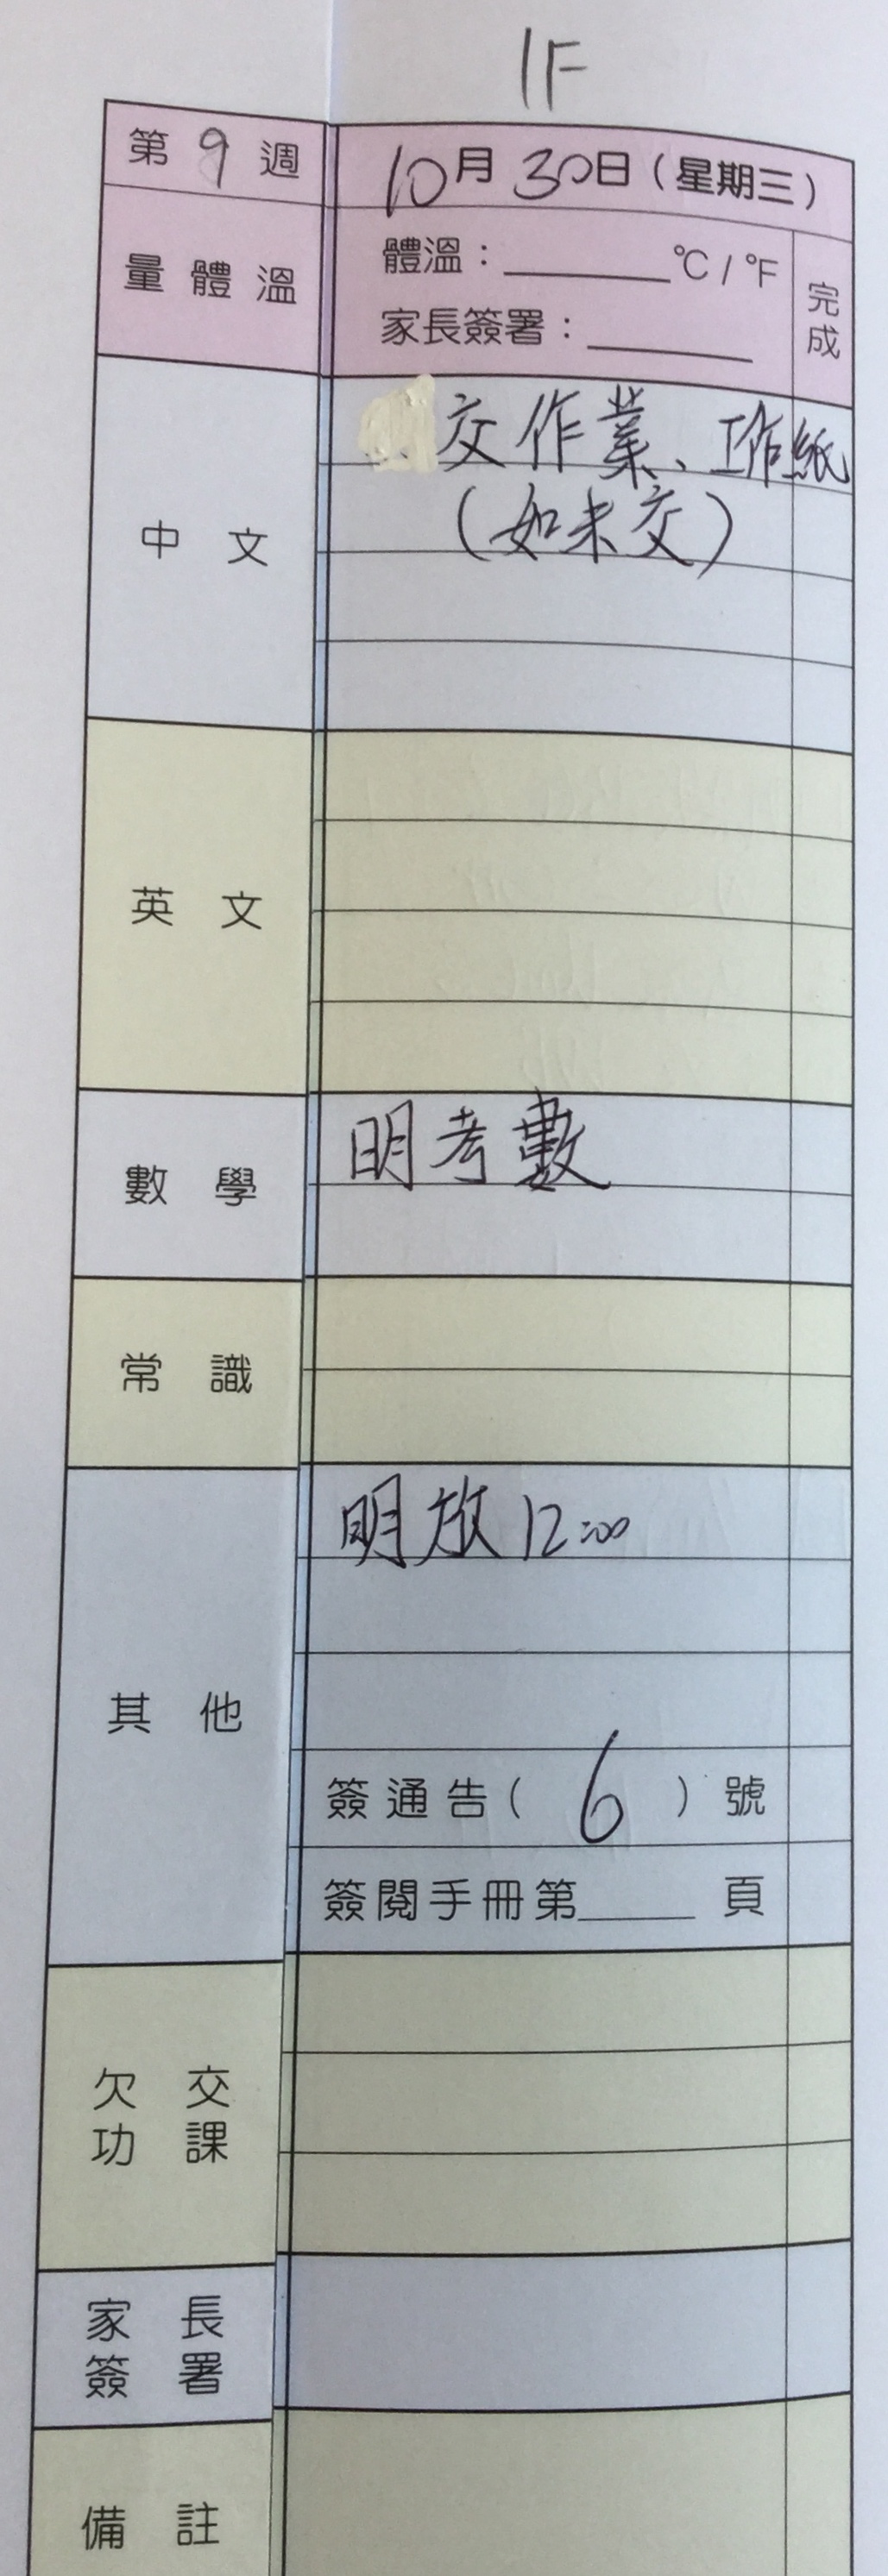 1F
第 9 週 10月30日(星期三)
量體溫 體溫:______°C/°F 完成
家長簽署:______
中文 交作業、工作紙
(如未交)
英文
數學 明考數
常識
其他 明放12:00
簽通告( 6 )號
簽閱手冊第____頁
欠交
功課
家長
簽署
備註